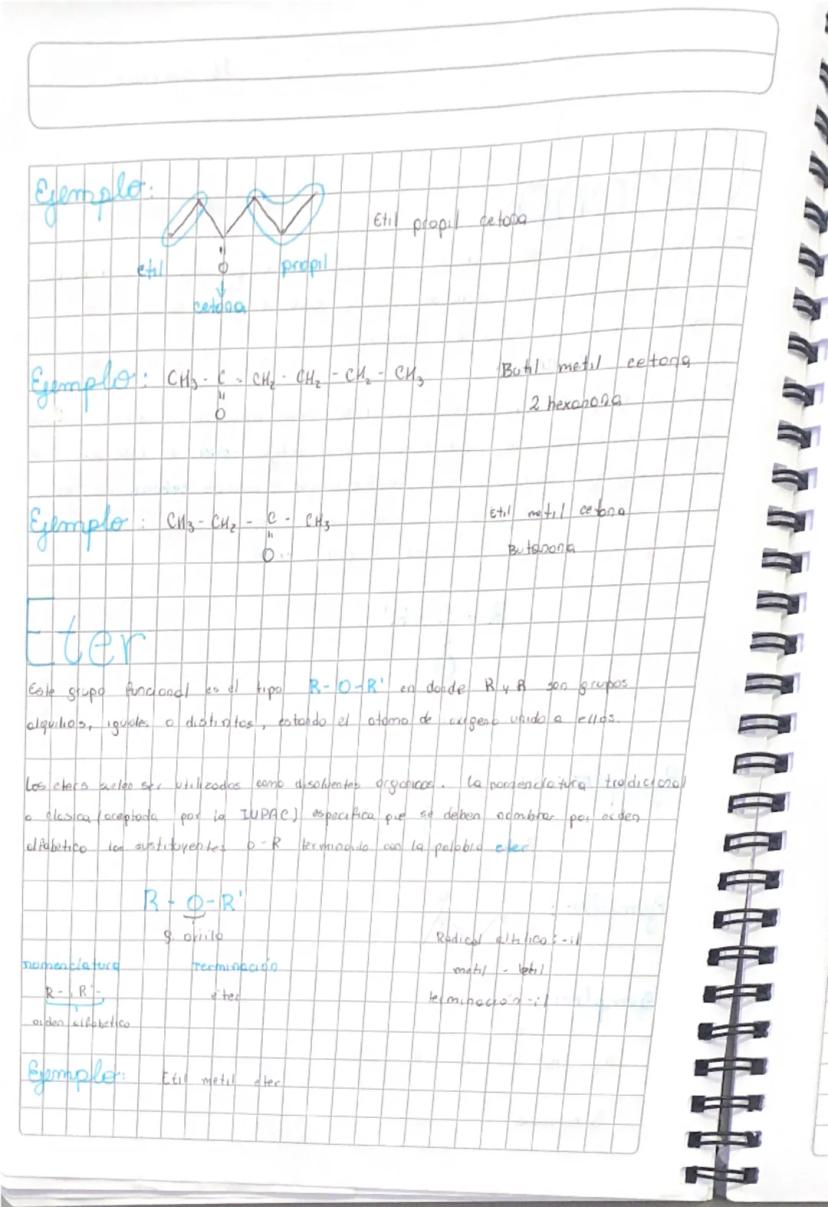 Ejemplo:
Etil propil cetona
etil
O
propil
cetona
Ejemplo: CH3 - C - CH2 - CH2 - CH2 - CH3
Butil metil cetona
O
2 hexanona
Ejemplo: CH3 - CH2 - C - CH3
Etil metil cetona
O
Butanona
Eter
Este grupo funcional es el tipo R-O-R' en donde R y R son grupos
alquilios, iguales o distintos, estando el atomo de oxigeno unido a ellos.
Los eters suelen ser utilizados como disolventes organicos. La nomenclatura tradicional
o clasica (aceptada por la IUPAC) especifica que se deben nombrar por orden
alfabetico los sustituyentes O-R terminando con la palabra eter
R - O - R'
g.
Radical :-il
nomenclatura
terminación
metil -
R-, R'-
éter
terminación -il
orden alfabetico
Ejemplo: Etil metil eter